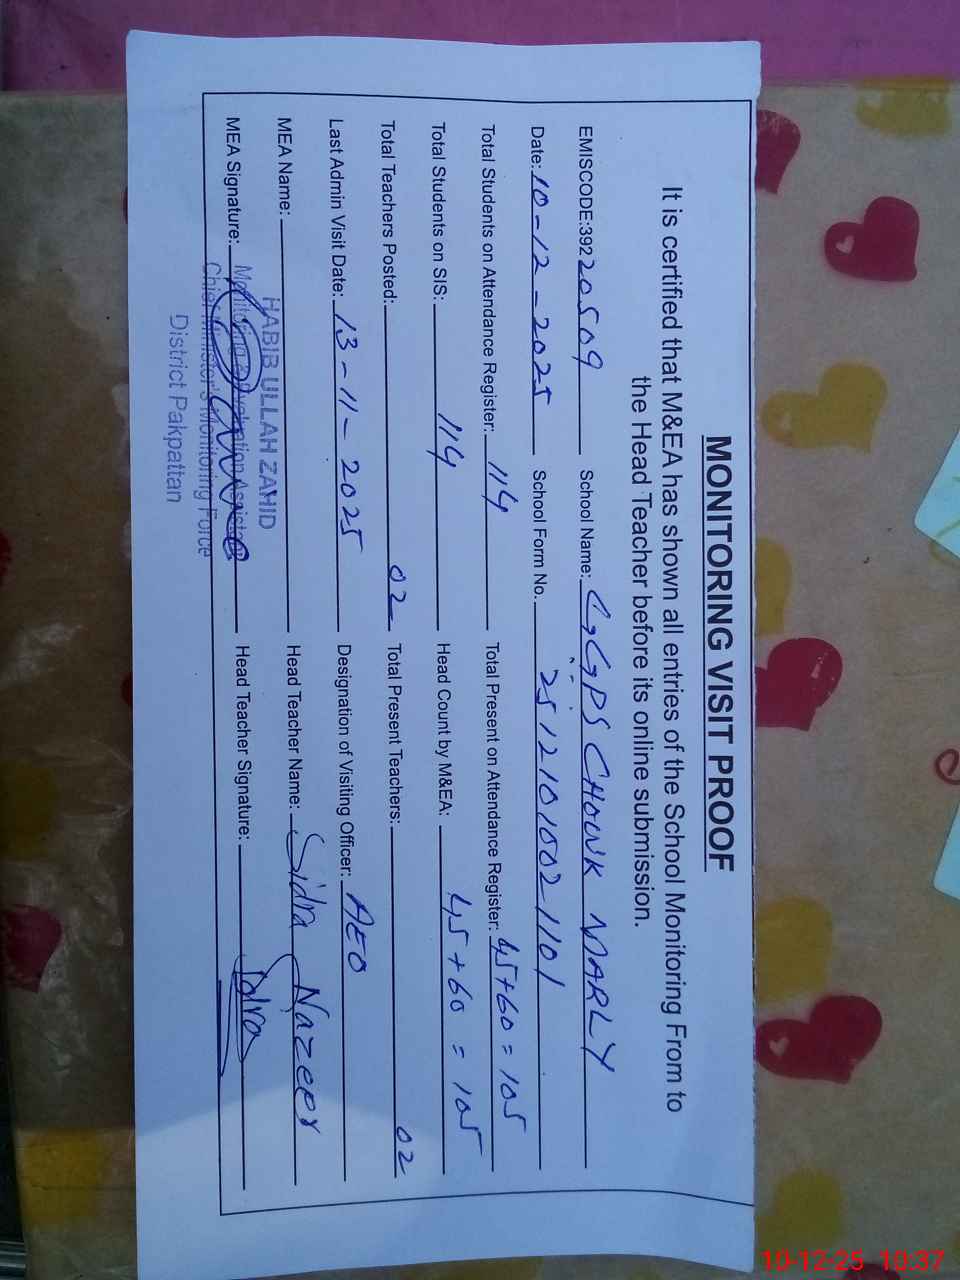 MONITORING VISIT PROOF
It is certified that M&EA has shown all entries of the School Monitoring From to
the Head Teacher before its online submission.
EMISCODE:39220509 School Name: GGPS CHOWK MARLY
Date: 10-12-2025 School Form No. 25121010021101
Total Students on Attendance Register: 114 Total Present on Attendance Register: 45+60=105
Total Students on SIS: 114 Head Count by M&EA: 45+60=105
Total Teachers Posted: 02 Total Present Teachers: 02
Last Admin Visit Date: 13-11-2025 Designation of Visiting Officer: AEO
MEA Name: HABIB ULLAH ZAHID Head Teacher Name: Sidra Nazeer
MEA Signature: Head Teacher Signature: Sidra
Monitoring & Evaluation Assistant
Chief Minister's Monitoring Force
District Pakpattan
10-12-25 10:37